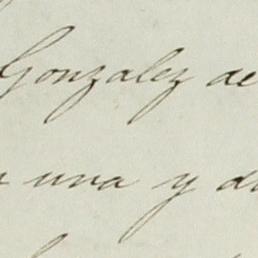 Gonzalez de
una y